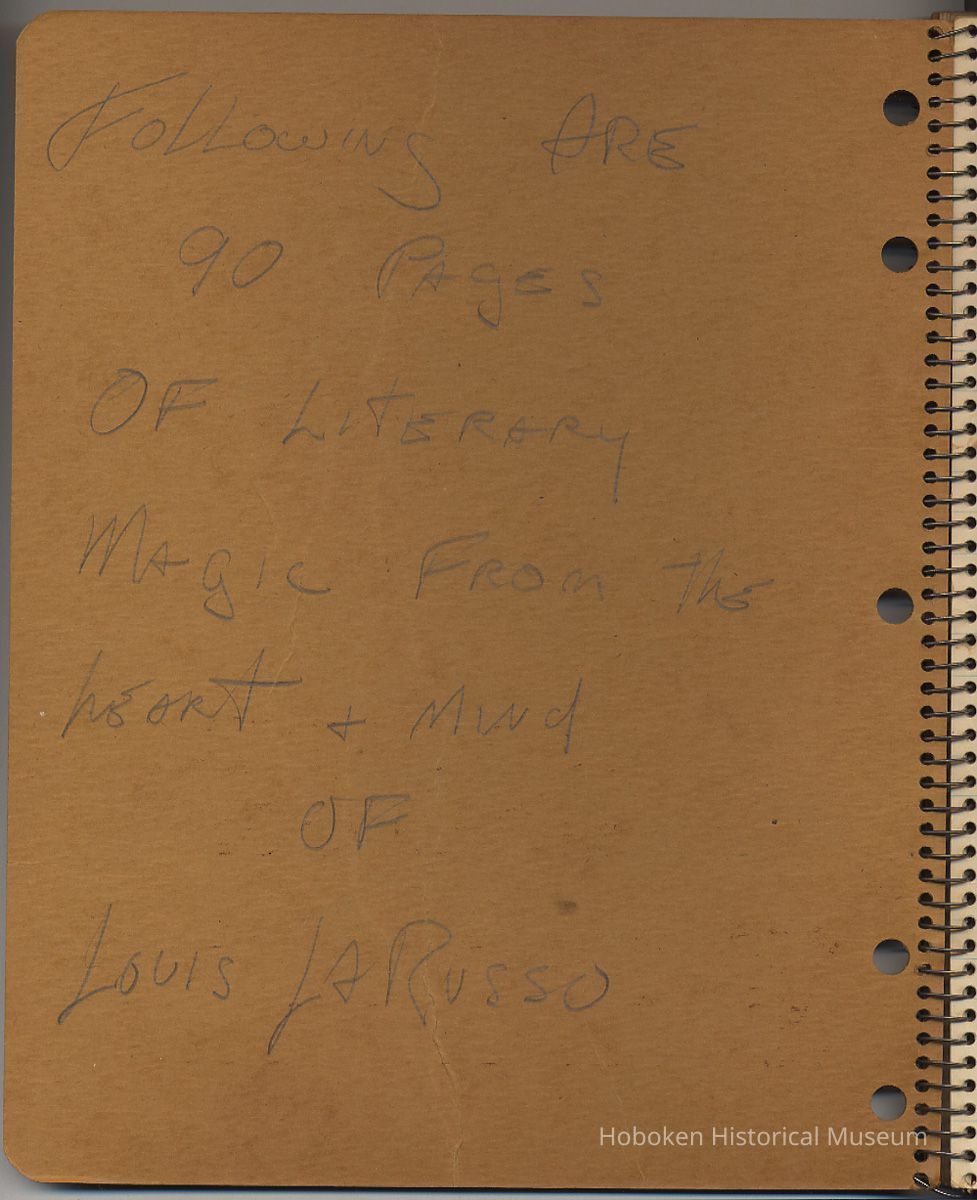 Following ARE
90 PAgES
OF LitERARY
MAgic FROM thE
hEARt + MINd
OF
Louis LARusso
Hoboken Historical Museum